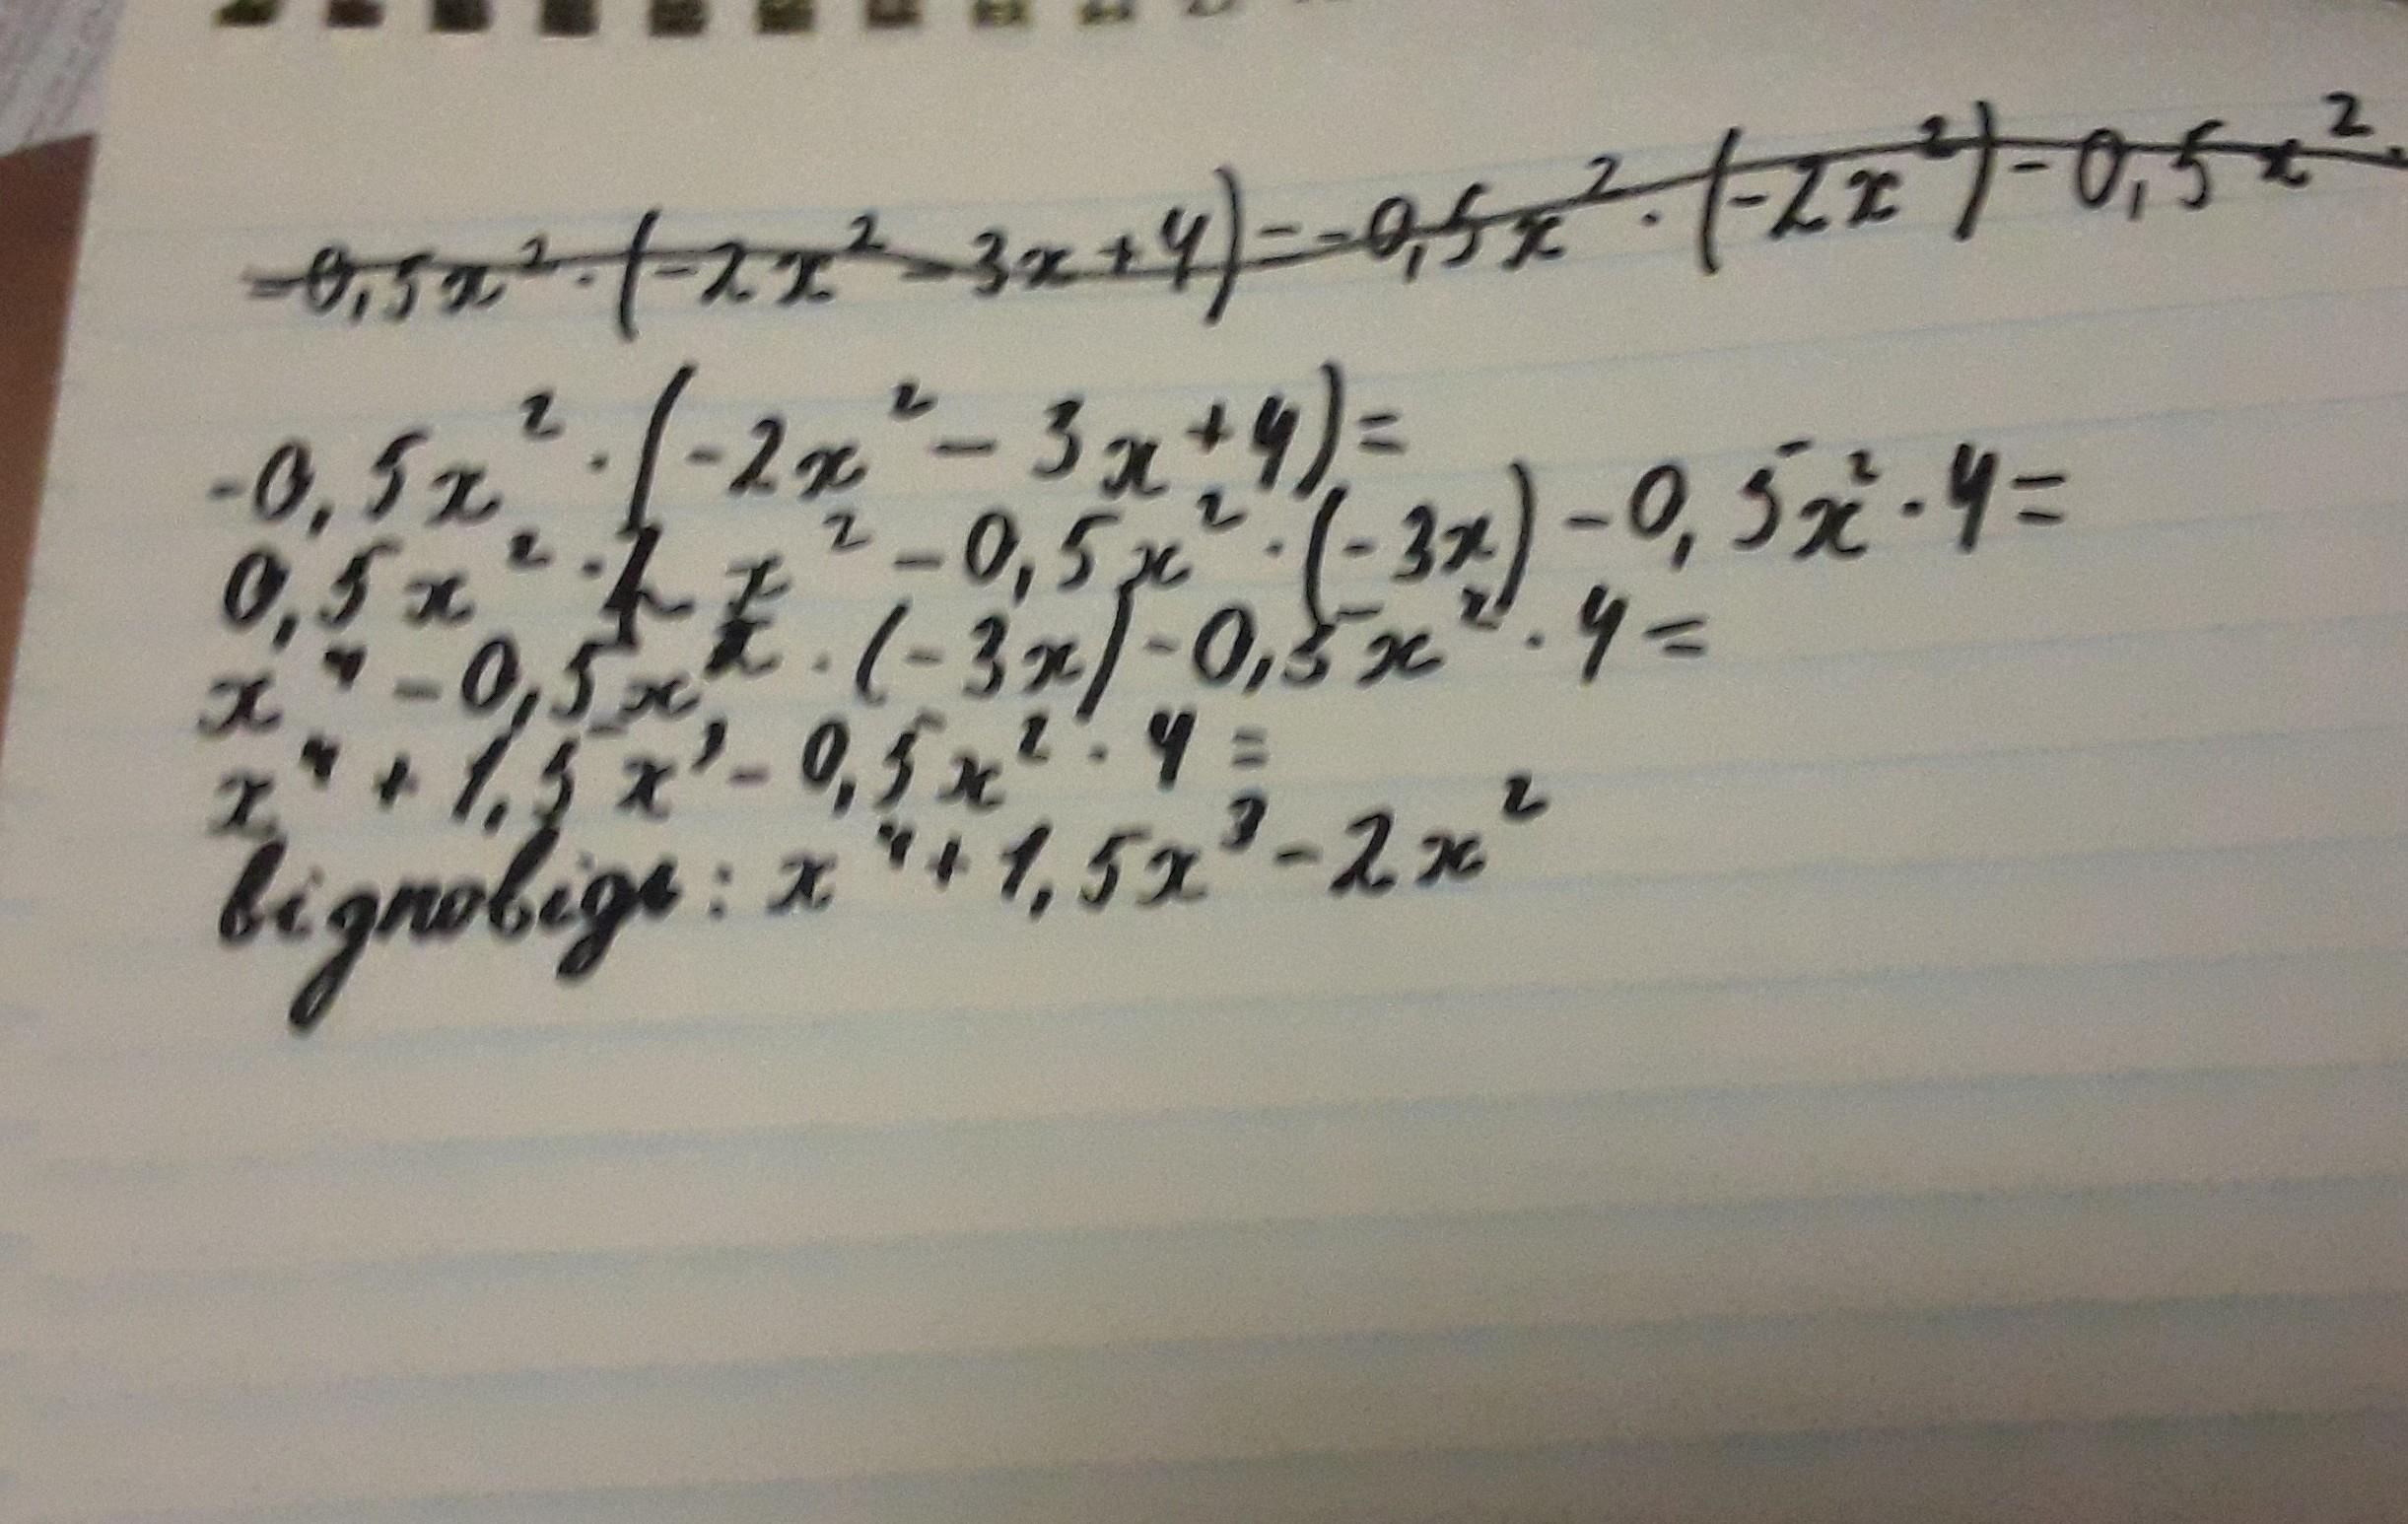 -0,5x²·(-2x²-3x+4)=-0,5x²·(-2x²)-0,5x²·
-0,5x²·(-2x²-3x+4)=
0,5x²·2x²-0,5x²·(-3x)-0,5x²·4=
x⁴-0,5x²·(-3x)-0,5x²·4=
x⁴+1,5x³-0,5x²·4=
відповідь: x⁴+1,5x³-2x²